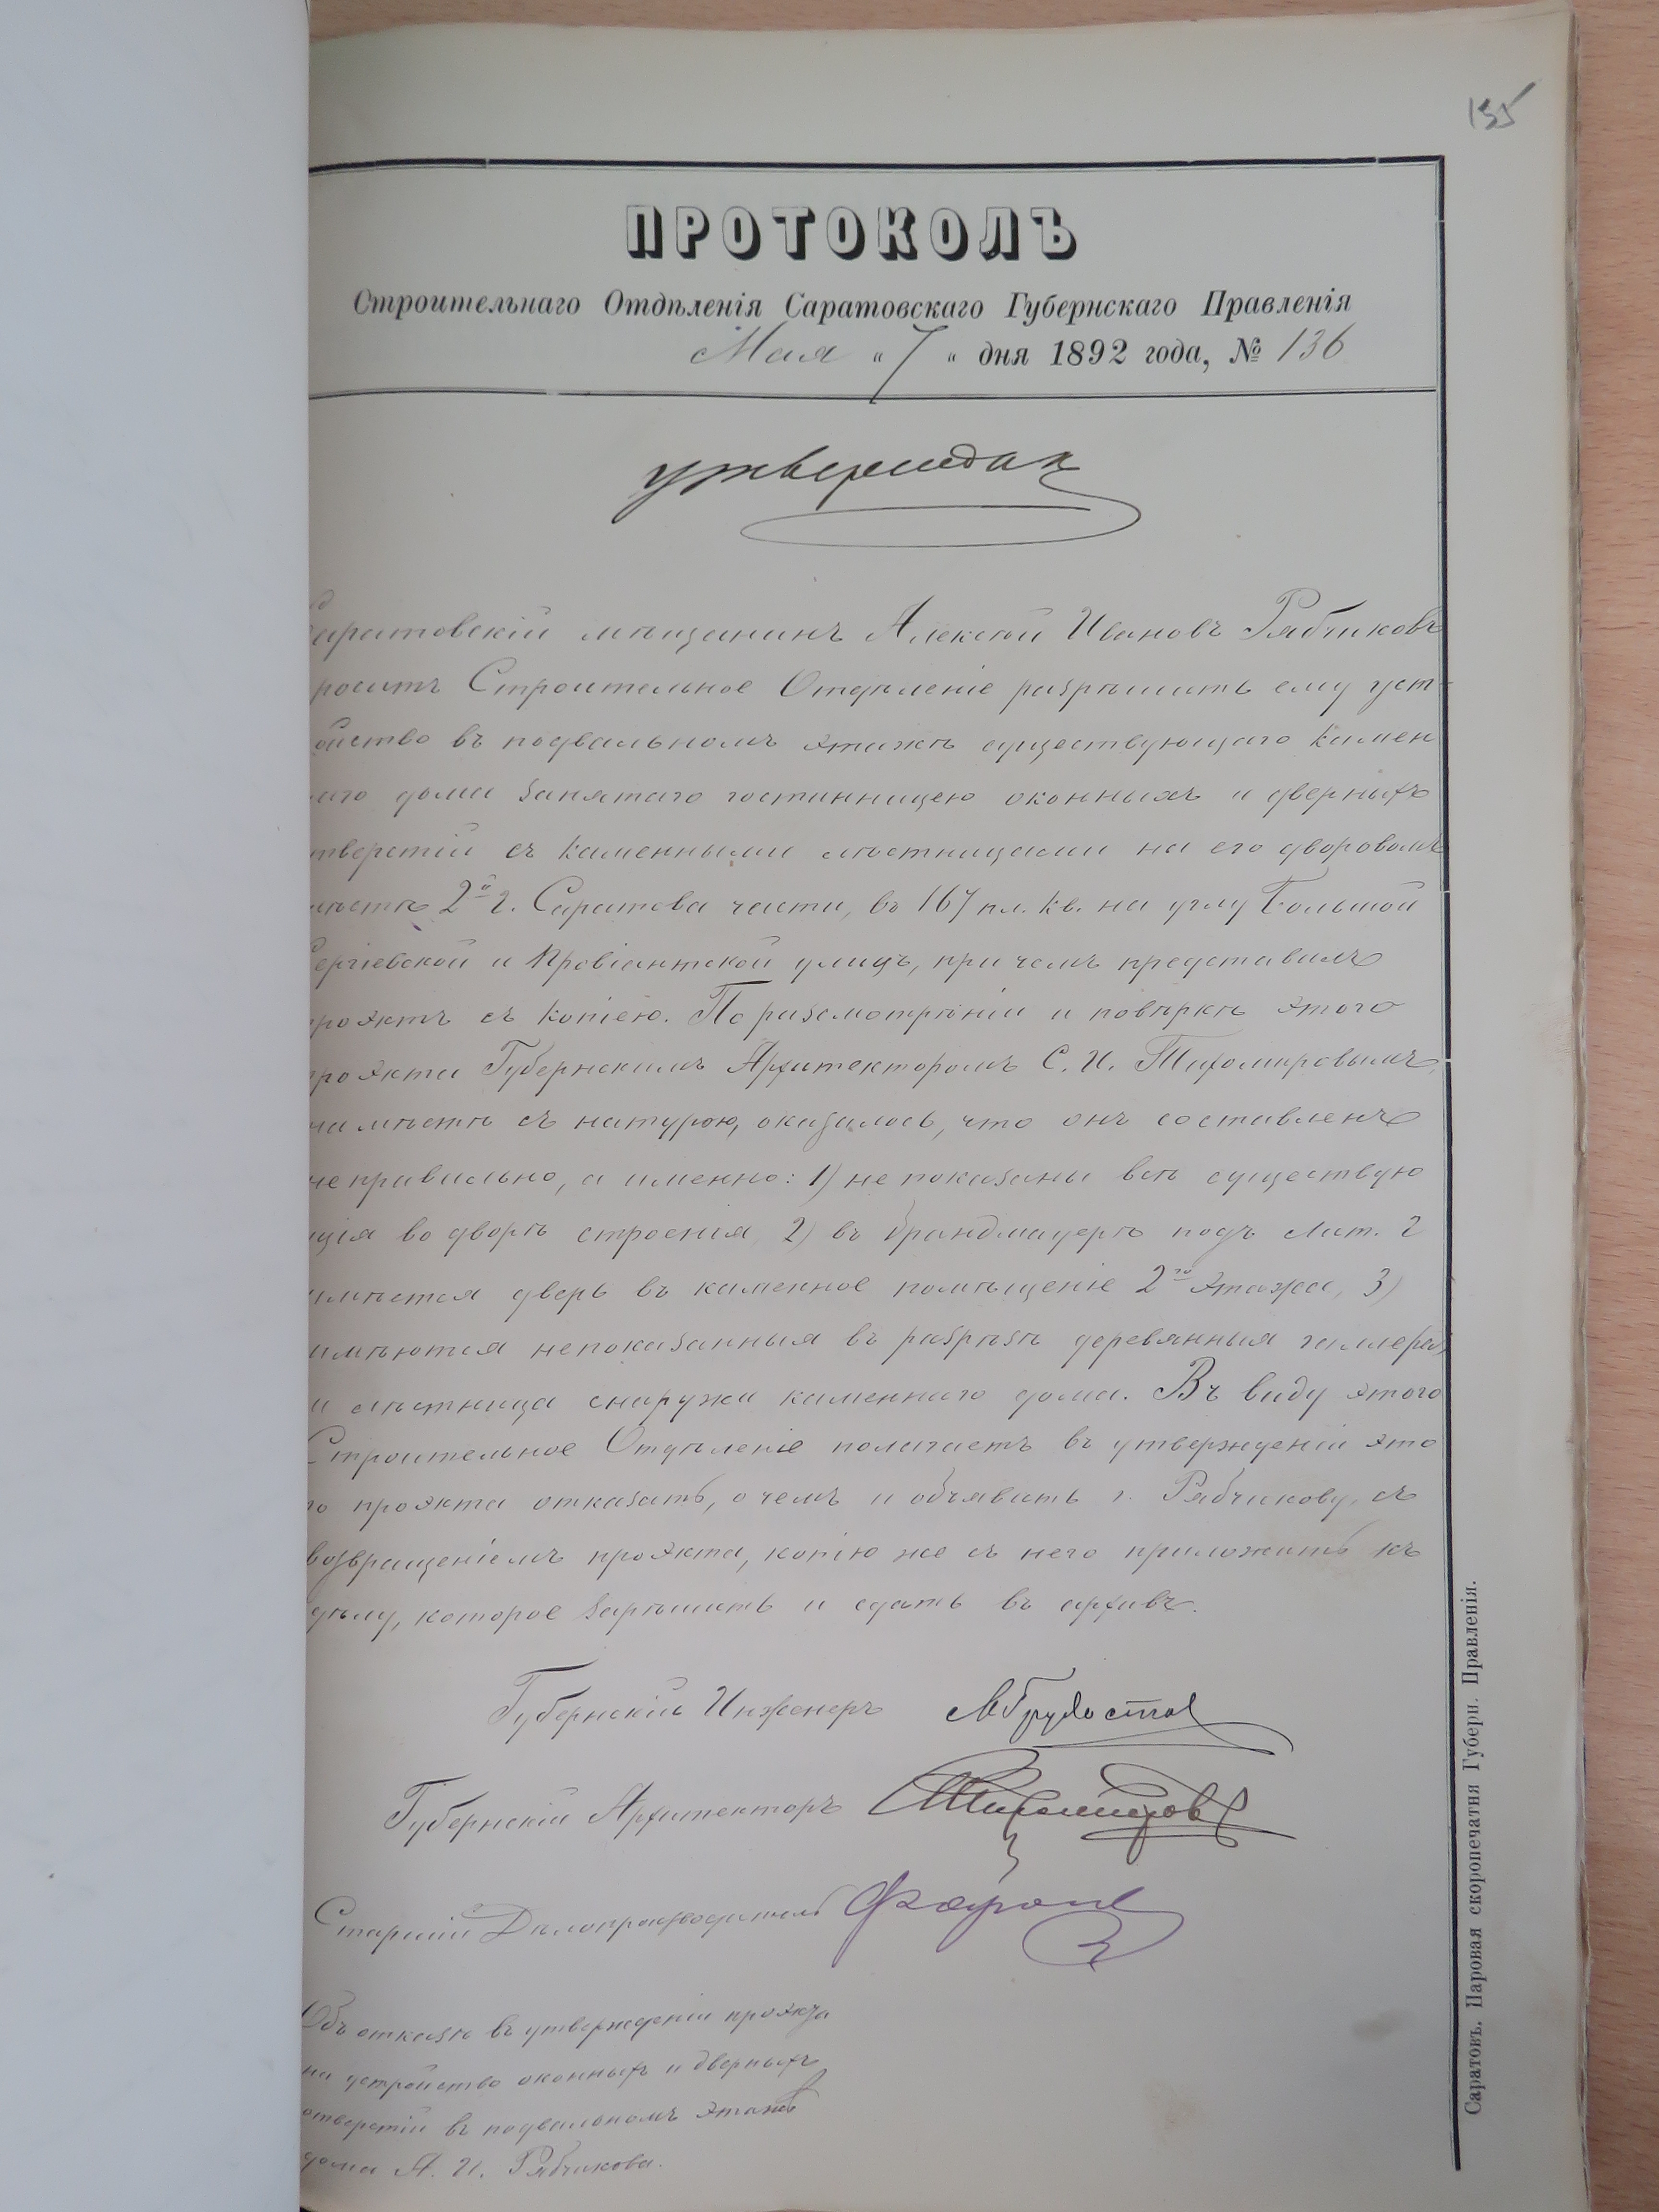 155
ПРОТОКОЛЪ
Строительнаго Отдѣленія Саратовскаго Губернскаго Правленія
Мая „ 7 „ дня 1892 года, № 136
утверждаю
Саратовскій мѣщанинъ Алексѣй Ивановъ Рябчиковъ
роситъ Строительное Отдѣленіе разрѣшить ему уст-
ойство въ подвальномъ этажѣ существующаго камен
аго дома занятаго гостинницею оконныхъ и дверныхъ
тверстій съ каменными лѣстницами на его дворовомъ
мѣстѣ 2й г. Саратова части, въ 167 пл. кв. на углу Большой
Сергіевской и Провіантской улицъ, при чемъ представилъ
проэктъ съ копіею. По разсмотрѣніи и повѣркѣ этого
проэкта Губернскимъ Архитекторомъ С. И. Тихомировымъ,
на мѣстѣ съ натурою, оказалось, что онъ составленъ
неправильно, а именно: 1) не показаны всѣ существую
щія во дворѣ строенія, 2) въ брандмауерѣ подъ лит. г
имѣется дверь въ каменное помѣщеніе 2го этажа, 3)
имѣются непоказанныя въ разрѣзѣ деревянныя галлереи
и лѣстница снаружи каменнаго дома. Въ виду этого
Строительное Отдѣленіе полагаетъ въ утвержденіи это
го проэкта отказать, о чемъ и объявить г. Рябчикову, съ
возвращеніемъ проэкта, копію же съ него приложить къ
дѣлу, которое зарѣшить и сдать въ архивъ.
Губернскій Инженеръ
Губернскій Архитекторъ Тихомировъ
Старшій Дѣлопроизводитель
Объ отказѣ въ утвержденіи проэкта
на устройство оконныхъ и дверныхъ
отверстій въ подвальномъ этажѣ
дома А. И. Рябчикова.
Саратовъ. Паровая скоропечатня Губерн. Правленія.